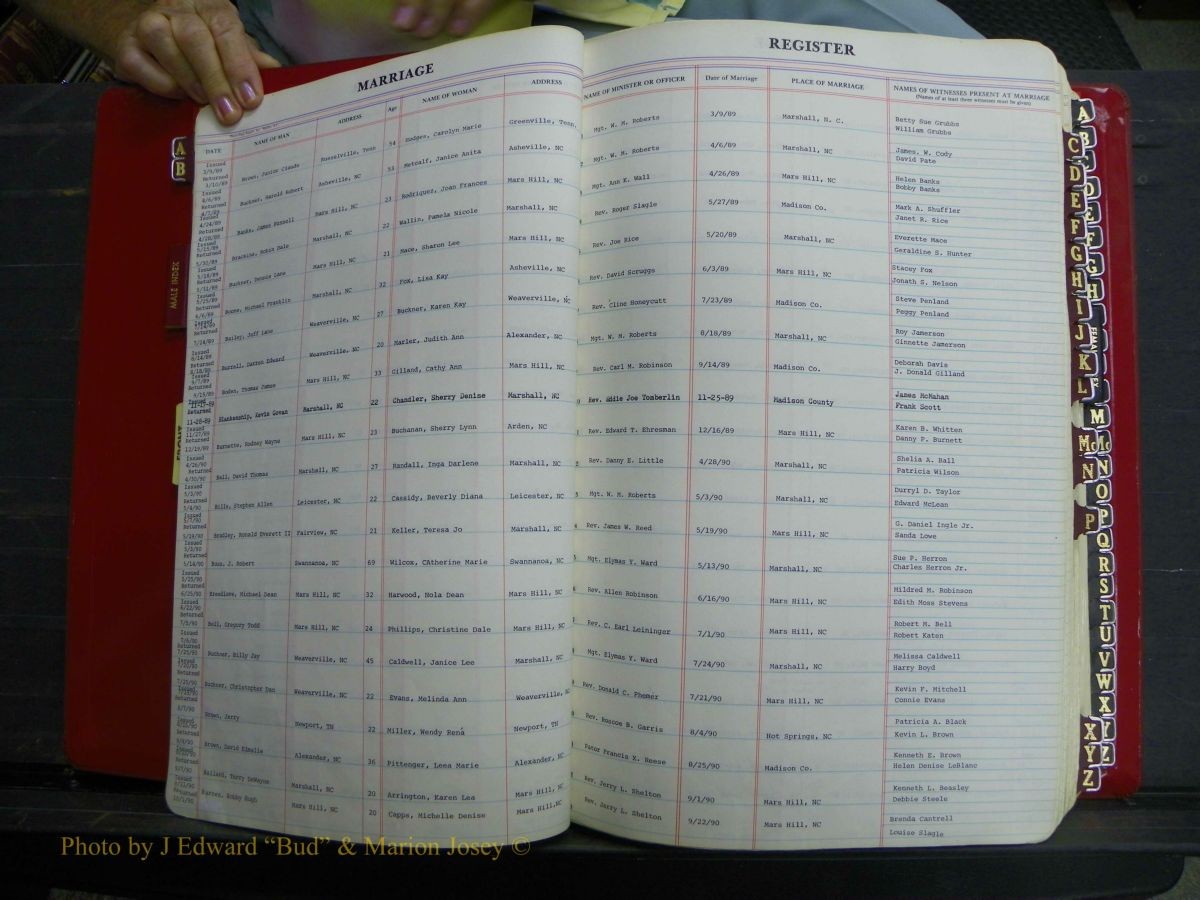 MARRIAGE
REGISTER
DATE NAME OF MAN ADDRESS Age NAME OF WOMAN ADDRESS NAME OF MINISTER OR OFFICER Date of Marriage PLACE OF MARRIAGE NAMES OF WITNESSES PRESENT AT MARRIAGE
(Names of at least three witnesses must be given)
Russelville, Tenn 54 Hodges, Carolyn Marie Greenville, Tenn. Mgt. W. M. Roberts 3/9/89 Marshall, N. C. Betty Sue Grubbs
William Grubbs
Buckner, Harold Robert Asheville, NC 53 Metcalf, Janice Anita Asheville, NC Mgt. W. M. Roberts 4/6/89 Marshall, NC James. W. Cody
David Pate
Banks, James Mars Hill, NC 23 Rodriguez, Joan Frances Mars Hill, NC Mgt. Ann K. Wall 4/26/89 Mars Hill, NC Helen Banks
Bobby Banks
Marshall, NC 22 Wallin, Pamela Nicole Marshall, NC Rev. Roger Slagle 5/27/89 Madison Co. Mark A. Shuffler
Janet R. Rice
Buckner, Dennis Lane Mars Hill, NC 21 Mace, Sharon Lee Mars Hill, NC Rev. Joe Rice 5/20/89 Marshall, NC Everette Mace
Geraldine S. Hunter
Boone, Michael Franklin Marshall, NC 32 Fox, Lisa Kay Asheville, NC Rev. David Scruggs 6/3/89 Mars Hill, NC Stacey Fox
Jonath S. Nelson
Bailey, Jeff Lane Weaverville, NC 27 Buckner, Karen Kay Weaverville, NC Rev. Cline Honeycutt 7/23/89 Madison Co. Steve Penland
Peggy Penland
Burrell, Darron Edward Weaverville, NC 20 Marler, Judith Ann Alexander, NC Mgt. W. M. Roberts 8/18/89 Marshall, NC Roy Jamerson
Ginnette Jamerson
Boden, Thomas James Mars Hill, NC 33 Gilland, Cathy Ann Mars Hill, NC Rev. Carl M. Robinson 9/14/89 Madison Co. Deborah Davis
J. Donald Gilland
Blankenship, Kevin Govan Marshall, NC 22 Chandler, Sherry Denise Marshall, NC Rev. Eddie Joe Tomberlin 11-25-89 Madison County James McMahan
Frank Scott
Burnette, Rodney Wayne Mars Hill, NC 23 Buchanan, Sherry Lynn Arden, NC Rev. Edward T. Ehresman 12/16/89 Mars Hill, NC Karen B. Whitten
Danny P. Burnett
Ball, David Thomas Marshall, NC 27 Randall, Inga Darlene Marshall, NC Rev. Danny E. Little 4/28/90 Marshall, NC Shelia A. Ball
Patricia Wilson
Bills, Stephen Allen Leicester, NC 22 Cassidy, Beverly Diana Leicester, NC Mgt. W. M. Roberts 5/3/90 Marshall, NC Durryl D. Taylor
Edward McLean
Bradley, Ronald Everett II Fairview, NC 21 Keller, Teresa Jo Marshall, NC Rev. James W. Reed 5/19/90 Mars Hill, NC G. Daniel Ingle Jr.
Sanda Lowe
J. Robert Swannanoa, NC 69 Wilcox, CAtherine Marie Swannanoa, NC Mgt. Elymas Y. Ward 5/13/90 Marshall, NC Sue P. Herron
Charles Herron Jr.
Breedlove, Michael Dean Mars Hill, NC 32 Harwood, Nola Dean Mars Hill, NC Rev. Allen Robinson 6/16/90 Mars Hill, NC Mildred M. Robinson
Edith Moss Stevens
Bell, Gregory Todd Mars Hill, NC 24 Phillips, Christine Dale Mars Hill, NC Rev. C. Earl Leininger 7/1/90 Mars Hill, NC Robert M. Bell
Robert Katen
Buckner, Billy Jay Weaverville, NC 45 Caldwell, Janice Lee Marshall, NC Mgt. Elymas Y. Ward 7/24/90 Marshall, NC Melissa Caldwell
Harry Boyd
Buckner, Christopher Dan Weaverville, NC 22 Evans, Melinda Ann Weaverville, NC Rev. Donald C. Phemer 7/21/90 Mars Hill, NC Kevin F. Mitchell
Connie Evans
Brown, Jerry Newport, TN 22 Miller, Wendy Rena Newport, TN Rev. Roscoe B. Garris 8/4/90 Hot Springs, NC Patricia A. Black
Kevin L. Brown
Brown, David Alexander, NC 36 Pittenger, Leea Marie Alexander, NC Pator Francis X. Reese 8/25/90 Madison Co. Kenneth E. Brown
Helen Denise LeBlanc
Ballard, Terry DeWayne Marshall, NC 20 Arrington, Karen Lea Mars Hill, NC Rev. Jerry L. Shelton 9/1/90 Mars Hill, NC Kenneth L. Beasley
Debbie Steele
Barnes, Bobby Hugh Mars Hill, NC 20 Capps, Michelle Denise Mars Hill, NC Rev. Jerry L. Shelton 9/22/90 Mars Hill, NC Brenda Cantrell
Louise Slagle
MALE INDEX
Photo by J Edward “Bud” & Marion Josey ©